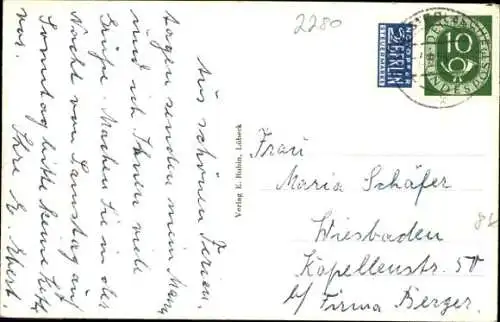 Aus schönen Ferien-
tagen senden mein Mann
und ich Ihnen viele
Grüße. Machen Sie in der
Nacht von Samstag auf
Sonntag bitte keine
vor.
Ihre E. Ebert.
Verlag E. Rubin, Lübeck
2280
NOTOPFER
2 BERLIN
STEUERMARKE
10
DEUTSCHE BUNDESPOST
Frau
Maria Schäfer
Wiesbaden
Kapellenstr. 50
b/ Firma Berger.